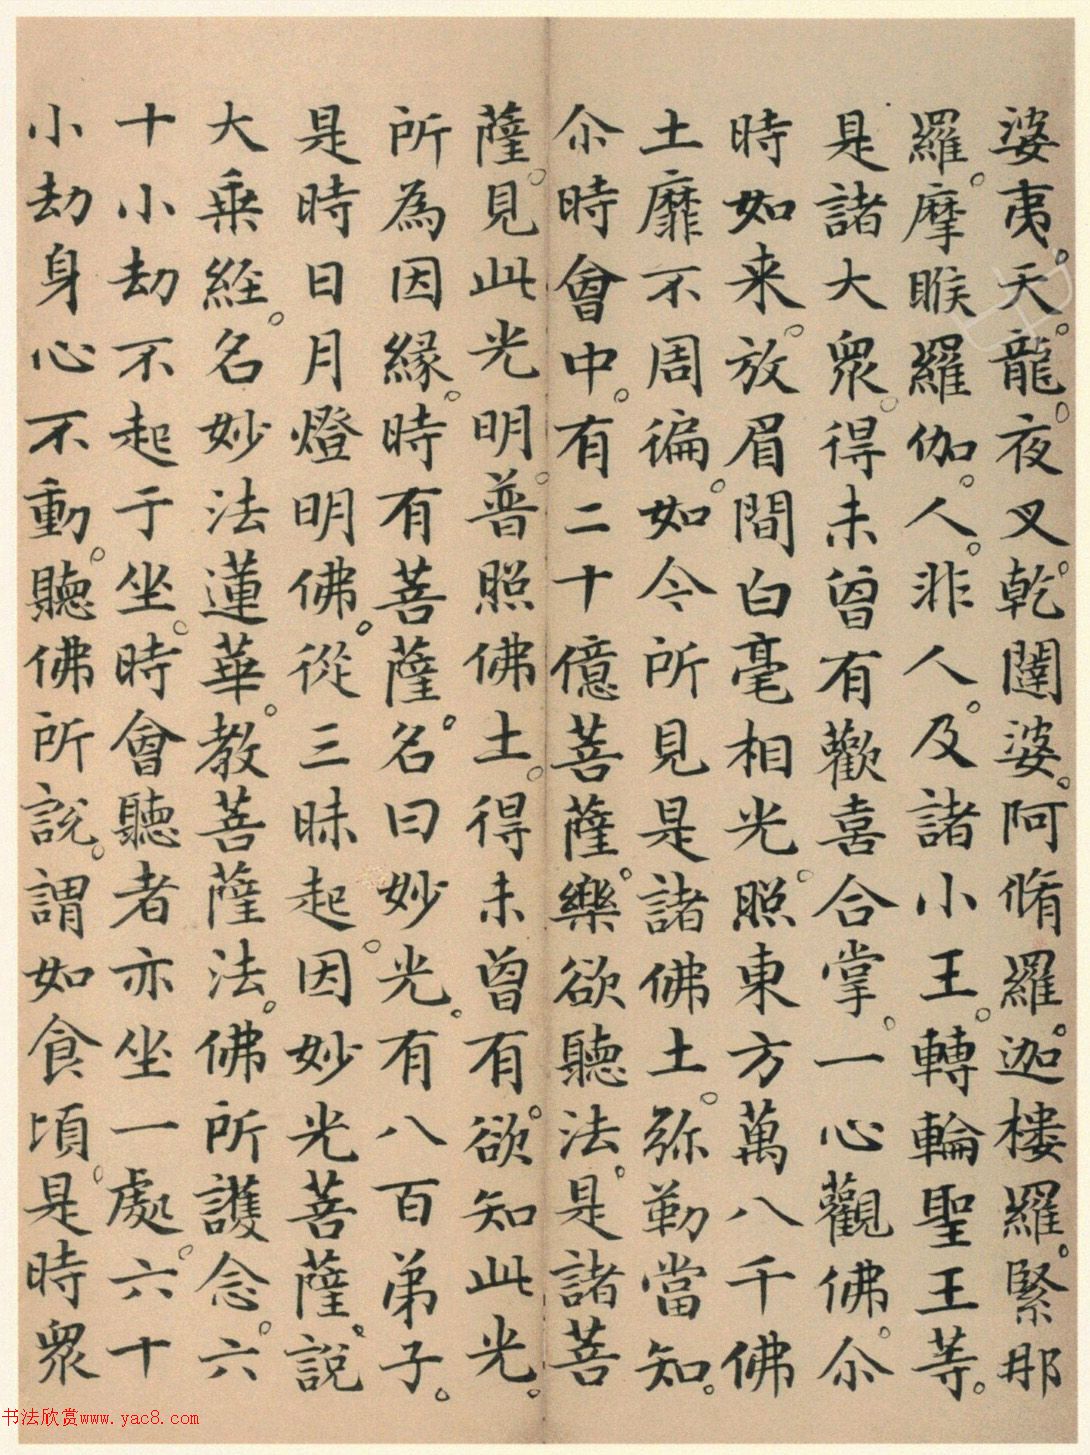 婆夷。天。龍。夜叉。乾闥婆。阿脩羅。迦樓羅。緊那
羅。摩睺羅伽。人。非人。及諸小王。轉輪聖王等。
是諸大衆。得未曾有歡喜合掌。一心觀佛。尒
時如来。放眉間白毫相光。照東方萬八千佛
土靡不周徧。如今所見是諸佛土。弥勒當知。
尒時會中。有二十億菩薩。樂欲聽法。是諸菩
薩。見此光明。普照佛土。得未曾有。欲知此光。
所為因緣。時有菩薩。名曰妙光。有八百弟子。
是時日月燈明佛。從三昧起。因妙光菩薩。說
大乘經。名妙法蓮華。教菩薩法。佛所護念。六
十小劫不起于坐。時會聽者亦坐一處。六十
小劫身心不動。聽佛所說。謂如食頃。是時衆
书法欣赏www.yac8.com